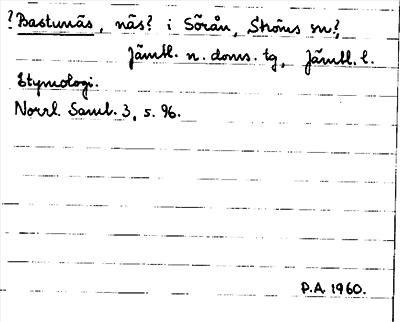 ?Bastunäs, näs? i Sörån, Ströms sn?,
Jämtl. n. doms. tg, Jämtl. l.
Etymologi.
Norrl. Saml. 3, s. 96.
P.A. 1960.